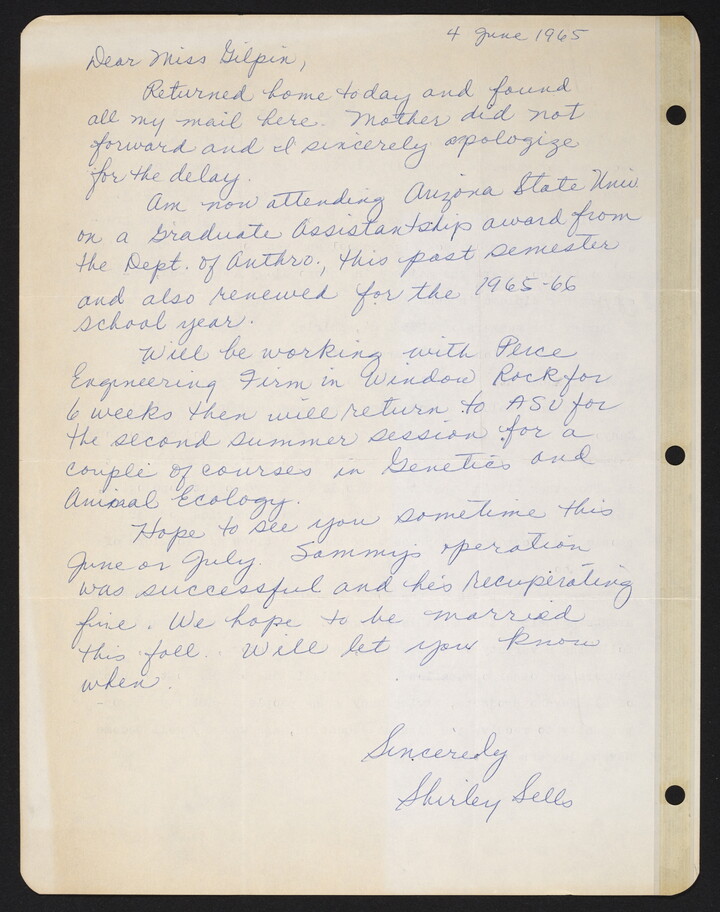 4 June 1965
Dear Miss Gilpin,
Returned home today and found
all my mail here. Mother did not
forward and I sincerely apologize
for the delay.
Am now attending Arizona State Univ
on a Graduate Assistantship award from
the Dept. of Anthro., this past semester
and also renewed for the 1965-66
school year.
Will be working with Perce
Engineering Firm in Window Rock for
6 weeks then will return to ASU for
the second summer session for a
couple of courses in Genetics and
Animal Ecology.
Hope to see you sometime this
June or July. Sammy's operation
was successful and he's recuperating
fine. We hope to be married
this fall. Will let you know
when.
Sincerely
Shirley Sells